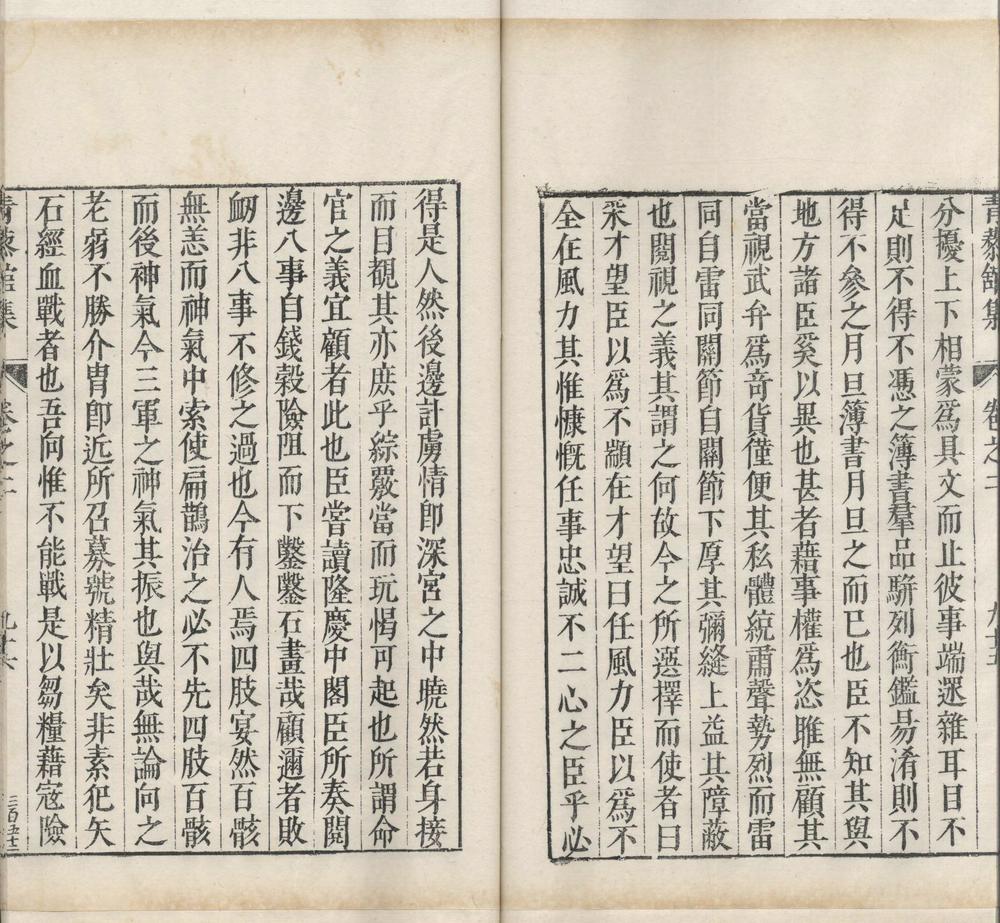 青藜館集 卷之二 九十五
分擾上下相蒙爲具文而止彼事端遝雜耳目不
足則不得不憑之簿書羣品騈列衡鑑易淆則不
得不參之月旦簿書月旦之而已也臣不知其與
地方諸臣奚以異也甚者藉事權爲恣睢無顧其
當視武弁爲竒貨僅便其私體統肅聲勢烈而雷
同自雷同關節自關節下厚其彌縫上益其障蔽
也閱視之義其謂之何故今之所選擇而使者曰
釆才望臣以爲不顓在才望曰任風力臣以爲不
全在風力其惟慷慨任事忠誠不二心之臣乎必
得是人然後邊計虜情卽深宮之中曉然若身接
而目覩其亦庶乎綜覈當而玩愒可起也所謂命
官之義宜顧者此也臣嘗讀隆慶中閣臣所奏閱
邊八事自錢穀險阻而下鑿鑿石畫哉顧邇者敗
衂非八事不修之過也今有人焉四肢宴然百骸
無恙而神氣中索使扁鵲治之必不先四肢百骸
而後神氣今三軍之神氣其振也與哉無論向之
老弱不勝介冑卽近所召募號精壯矣非素犯矢
石經血戰者也吾向惟不能戰是以芻糧藉寇險
青藜館集 卷之二 九十六
三百五十二